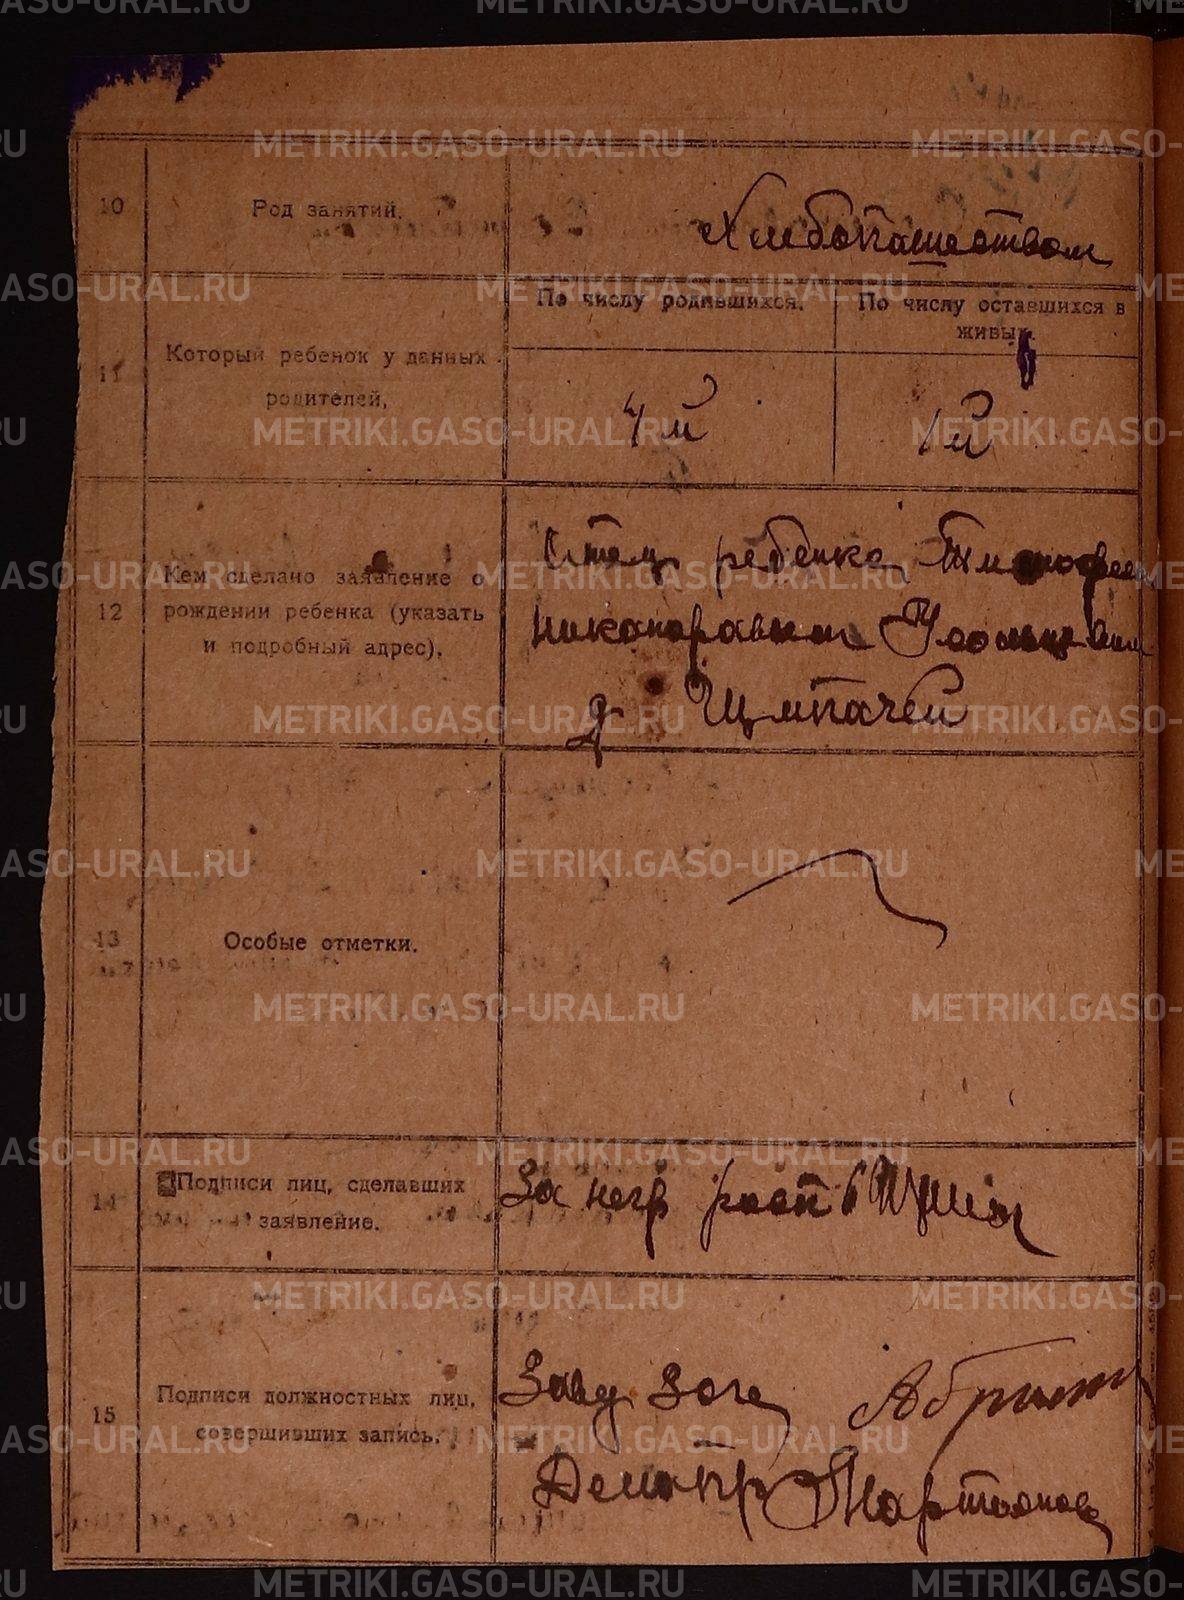 10 Род занятий. Хлебопашеством
11 Который ребенок у данных родителей.
По числу родившихся.
По числу оставшихся в живых.
4й
1й
12 Кем сделано заявление о рождении ребенка (указать и подробный адрес).
Отец ребенка Тимофеем
Никаноравым
д
13 Особые отметки.
14 Подписи лиц, сделавших заявление.
За негр росп
15 Подписи должностных лиц, совершивших запись.
Завд Загс
METRIKI.GASO-URAL.RU